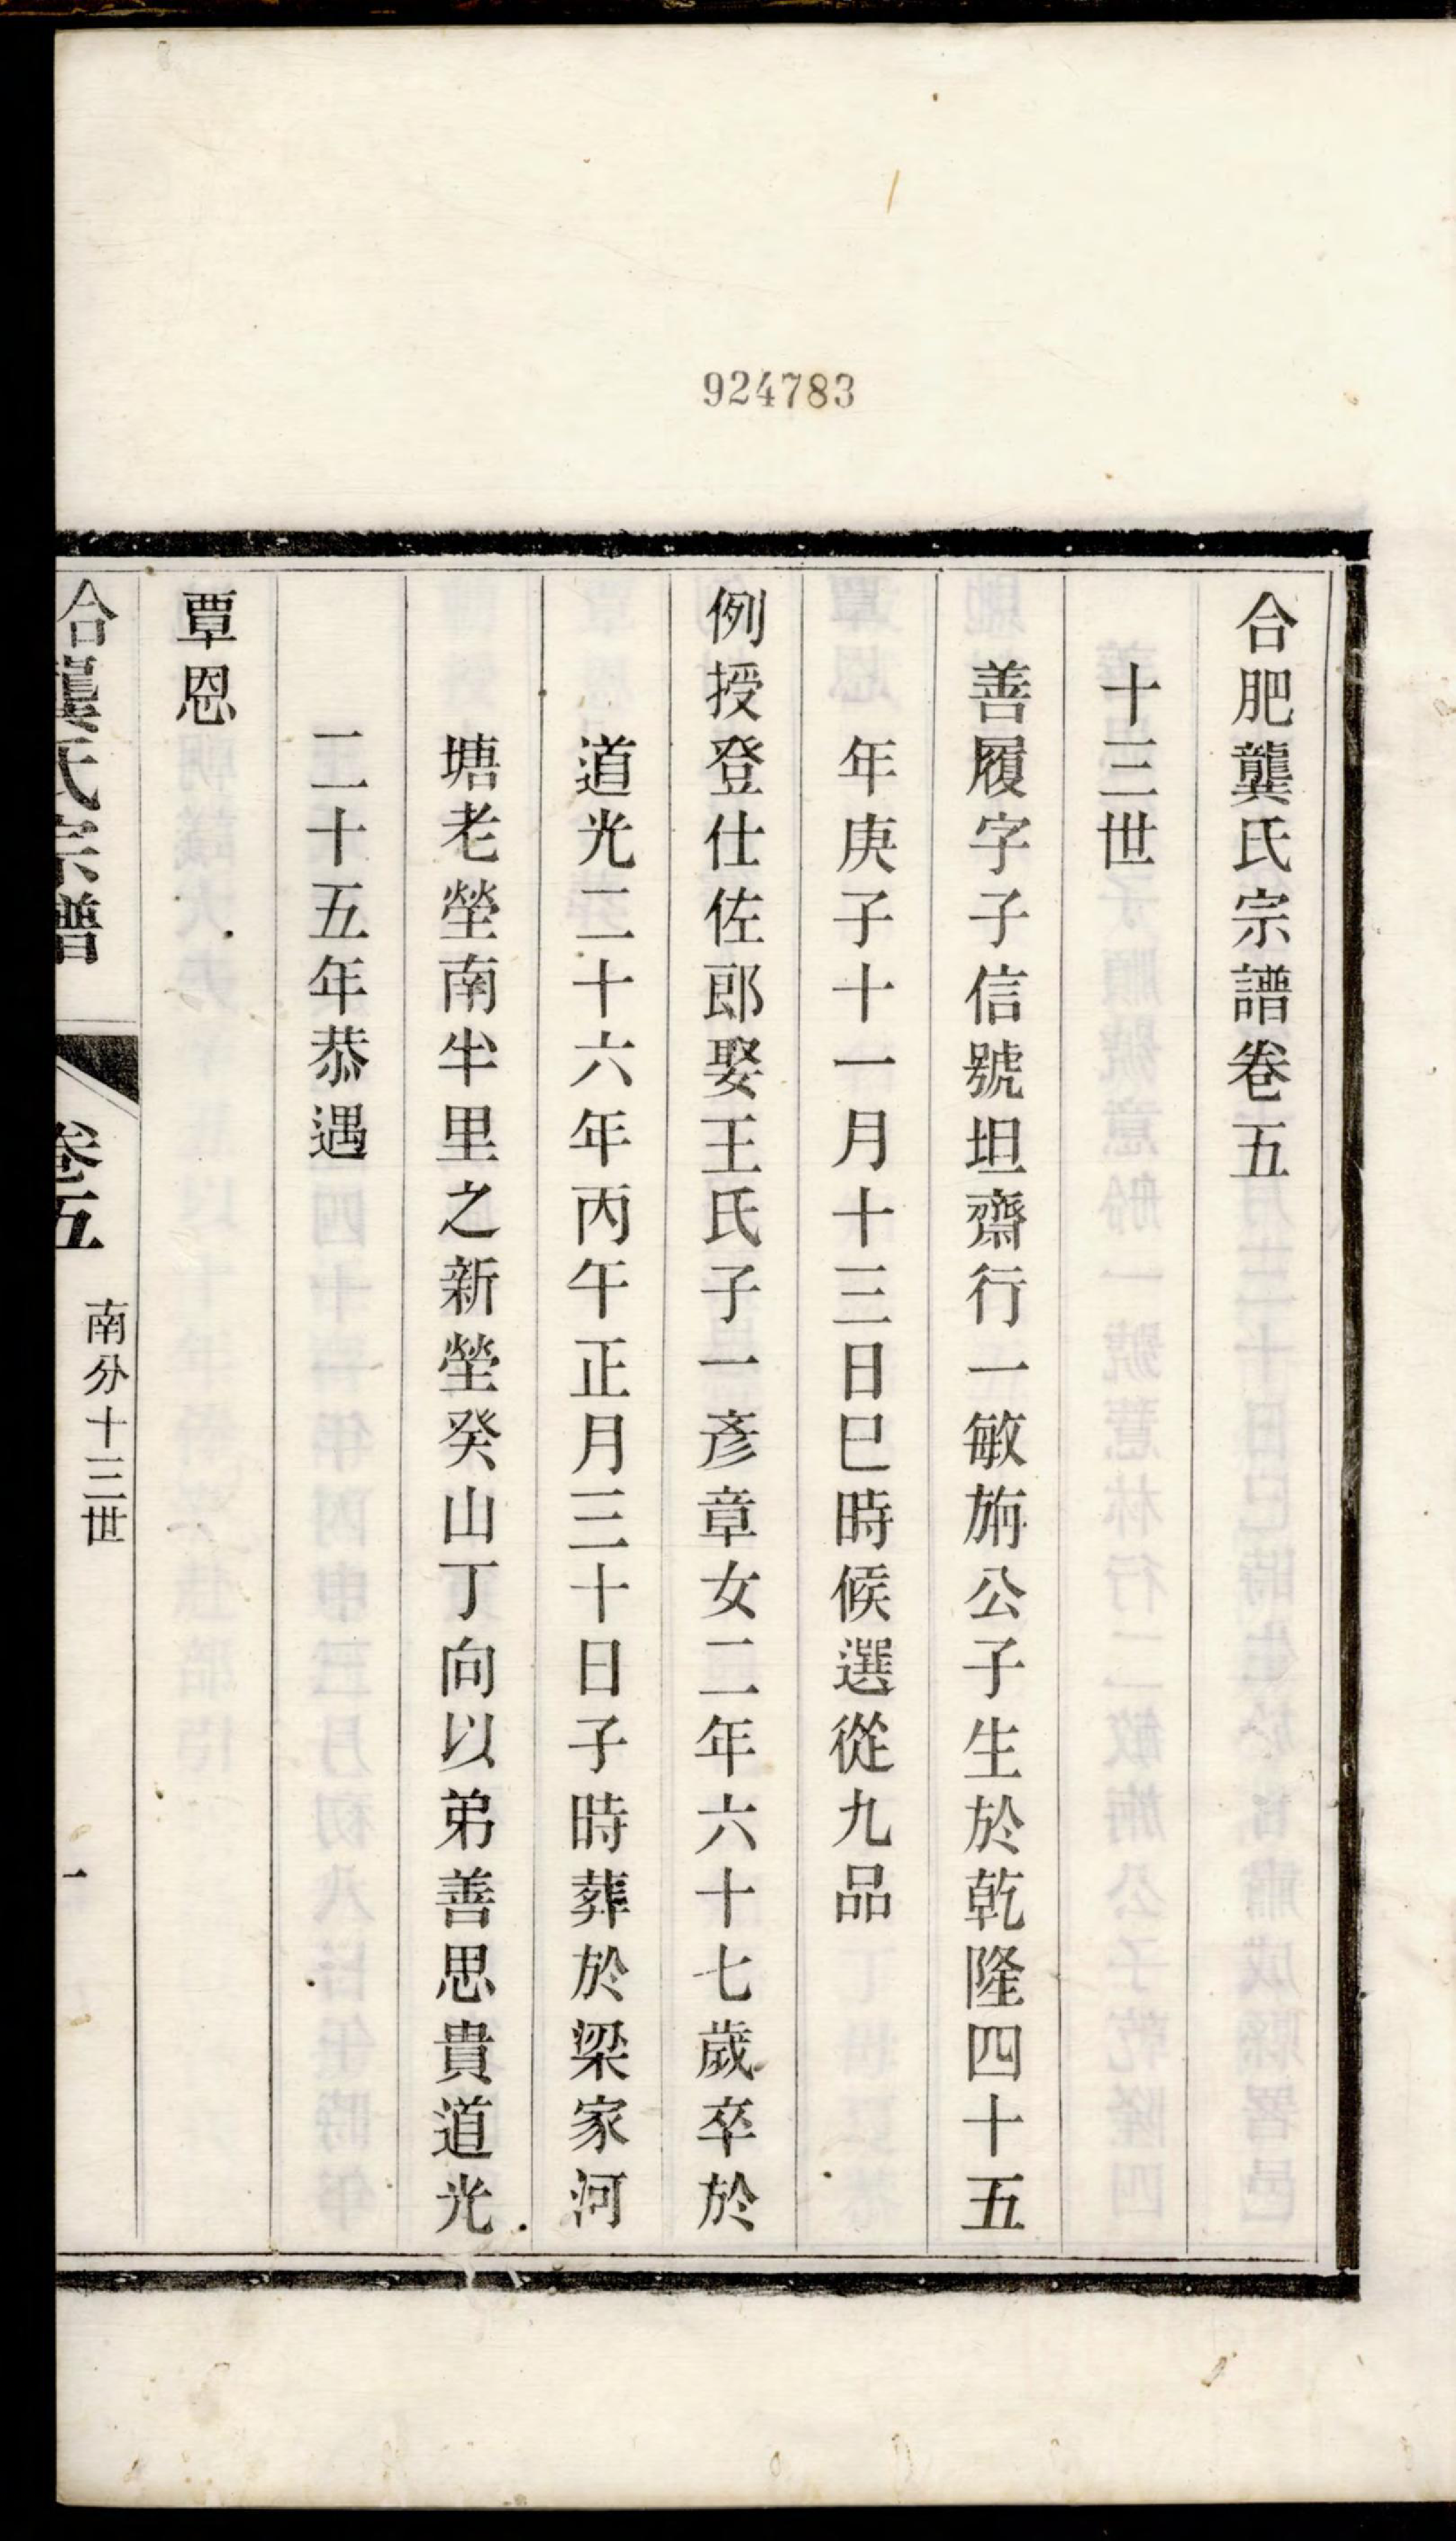 924783
合肥龔氏宗譜卷五
十三世
善履字子信號坦齋行一敏旃公子生於乾隆四十五
年庚子十一月十三日巳時候選從九品
例授登仕佐郎娶王氏子一彥章女二年六十七歲卒於
道光二十六年丙午正月三十日子時葬於梁家河
塘老塋南半里之新塋癸山丁向以弟善思貴道光
二十五年恭遇
覃恩
合肥龔氏宗譜 卷五 南分十三世 一